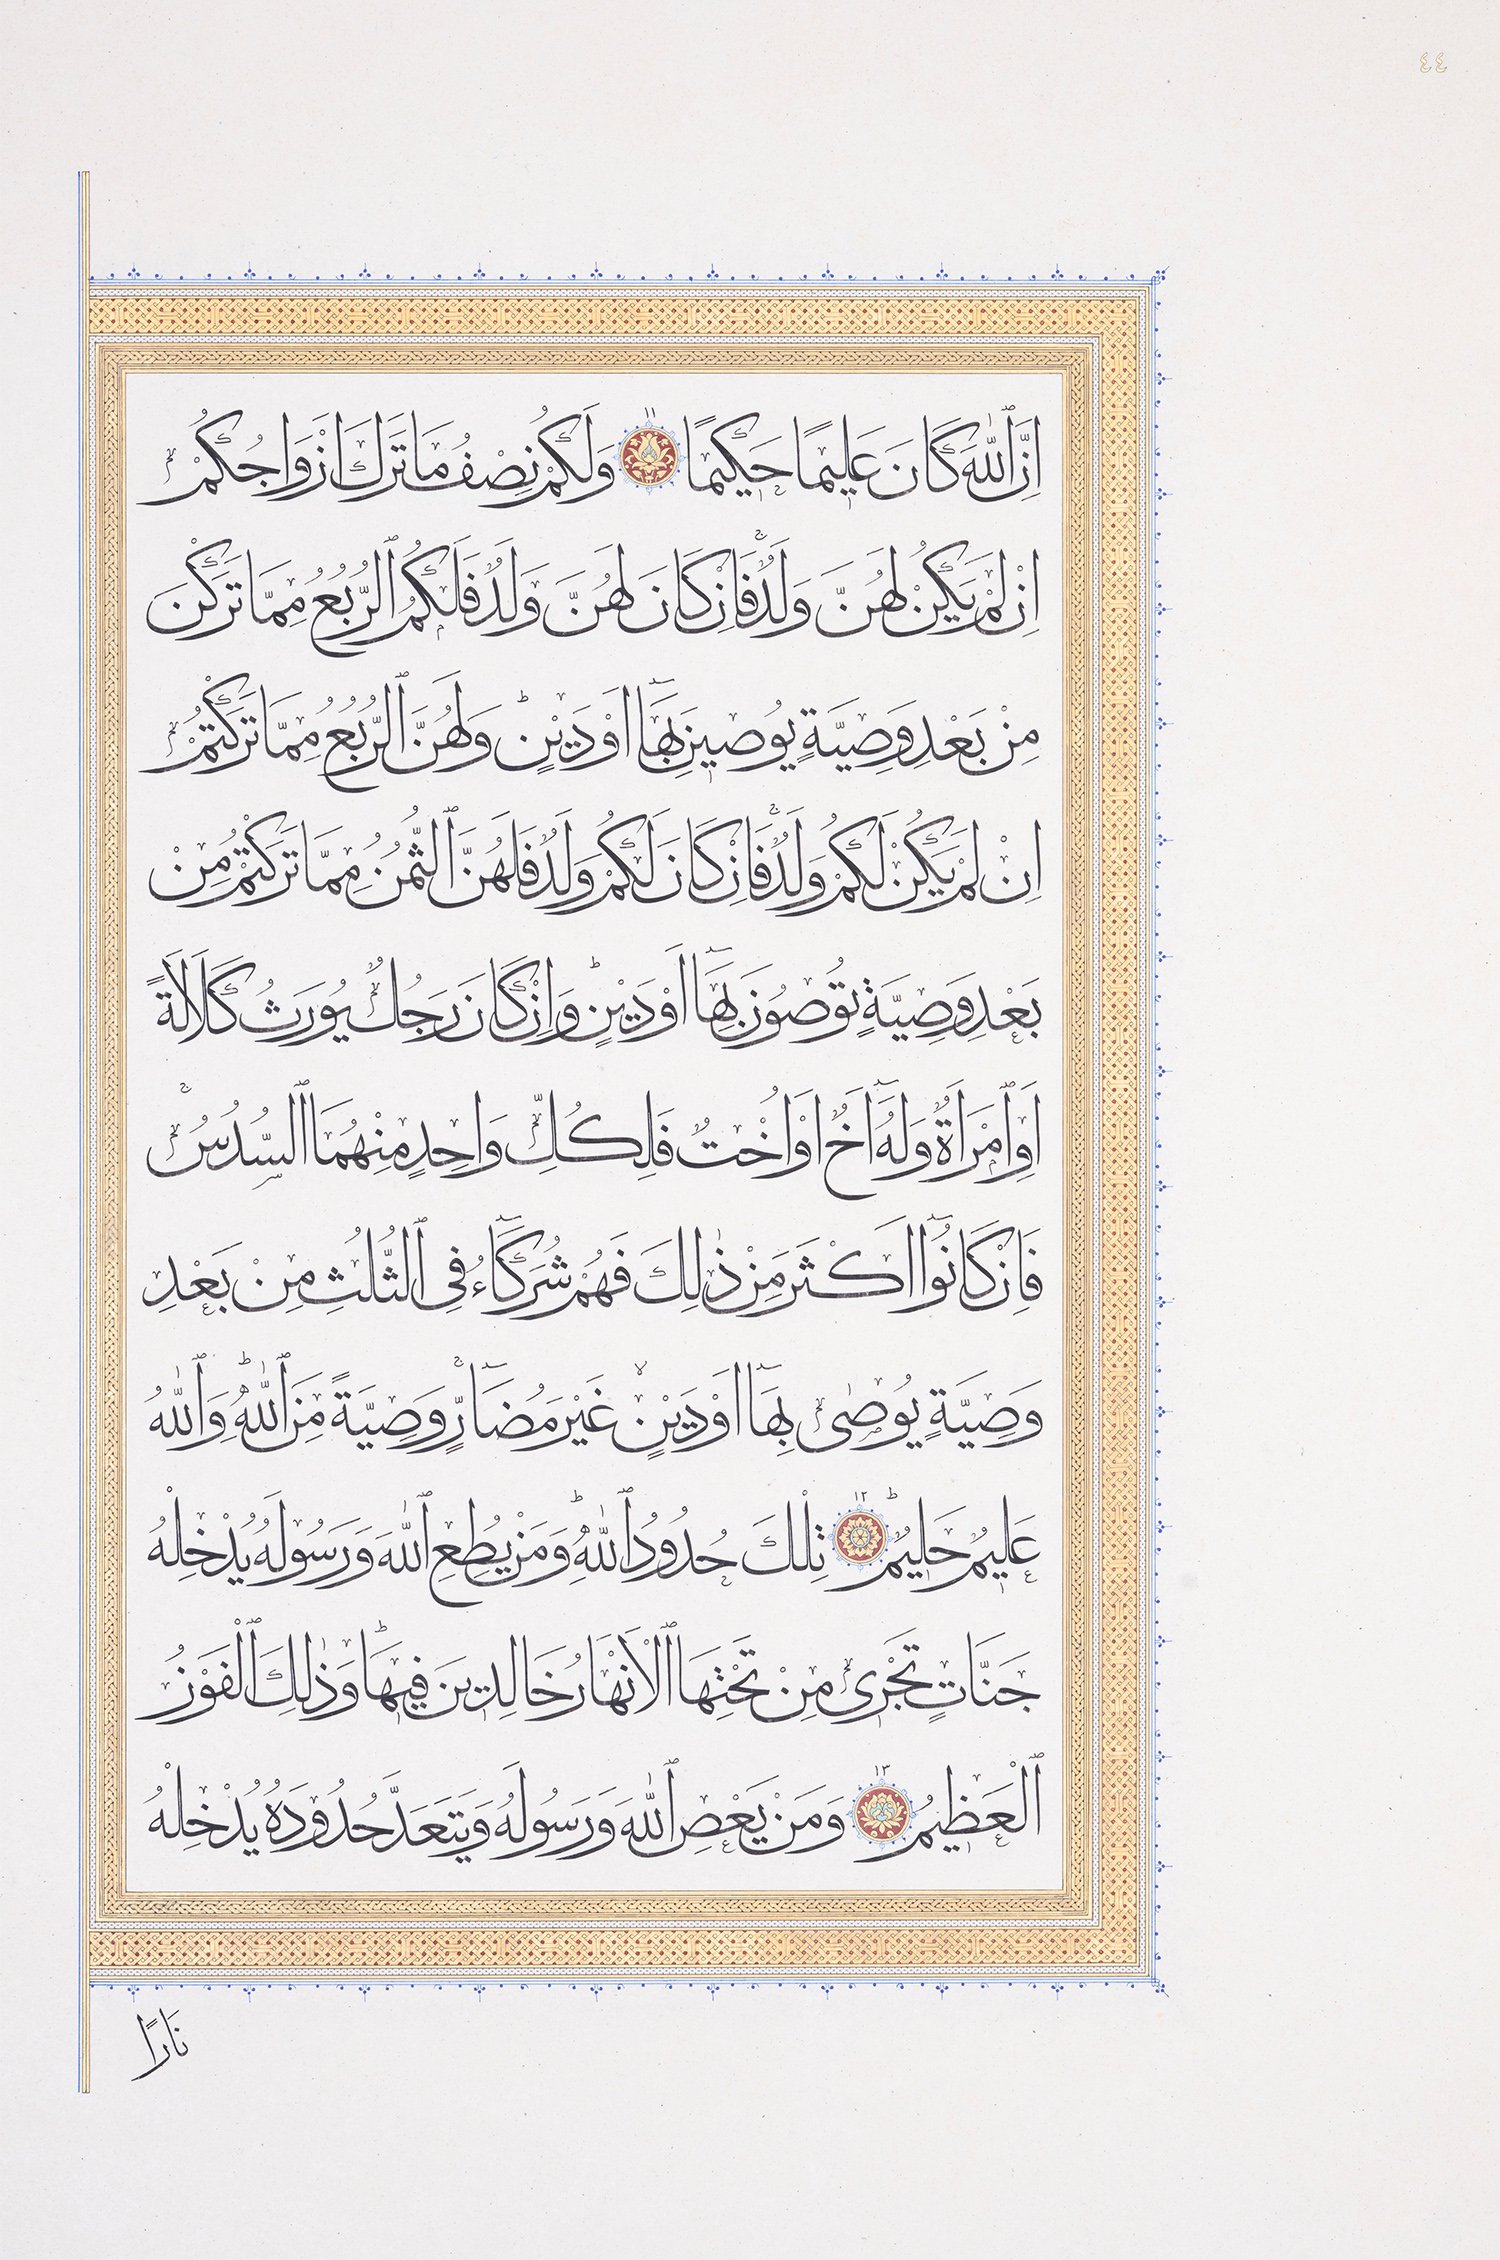 ٤٤
اِنَّ ٱللّٰهَ كَانَ عَلِيمًا حَكِيمًا ١١ وَلَكُمْ نِصْفُ مَا تَرَكَ اَزْوَاجُكُمْ
اِنْ لَمْ يَكُنْ لَهُنَّ وَلَدٌ فَاِنْ كَانَ لَهُنَّ وَلَدٌ فَلَكُمُ ٱلرُّبُعُ مِمَّا تَرَكْنَ
مِنْ بَعْدِ وَصِيَّةٍ يُوصِينَ بِهَٓا اَوْ دَيْنٍ وَلَهُنَّ ٱلرُّبُعُ مِمَّا تَرَكْتُمْ
اِنْ لَمْ يَكُنْ لَكُمْ وَلَدٌ فَاِنْ كَانَ لَكُمْ وَلَدٌ فَلَهُنَّ ٱلثُّمُنُ مِمَّا تَرَكْتُمْ مِنْ
بَعْدِ وَصِيَّةٍ تُوصُونَ بِهَٓا اَوْ دَيْنٍ وَاِنْ كَانَ رَجُلٌ يُورَثُ كَلَالَةً
اَوِ ٱمْرَاَةٌ وَلَهُٓ اَخٌ اَوْ اُخْتٌ فَلِكُلِّ وَاحِدٍ مِنْهُمَا ٱلسُّدُسُ
فَاِنْ كَانُٓوا اَكْثَرَ مِنْ ذٰلِكَ فَهُمْ شُرَكَٓاءُ فِي ٱلثُّلُثِ مِنْ بَعْدِ
وَصِيَّةٍ يُوصٰى بِهَٓا اَوْ دَيْنٍ غَيْرَ مُضَٓارٍّ وَصِيَّةً مِنَ ٱللّٰهِ وَٱللّٰهُ
عَلِيمٌ حَلِيمٌ ١٢ تِلْكَ حُدُودُ ٱللّٰهِ وَمَنْ يُطِعِ ٱللّٰهَ وَرَسُولَهُ يُدْخِلْهُ
جَنَّاتٍ تَجْرِي مِنْ تَحْتِهَا ٱلْاَنْهَارُ خَالِدِينَ فِيهَا وَذٰلِكَ ٱلْفَوْزُ
ٱلْعَظِيمُ ١٣ وَمَنْ يَعْصِ ٱللّٰهَ وَرَسُولَهُ وَيَتَعَدَّ حُدُودَهُ يُدْخِلْهُ
نَارًا